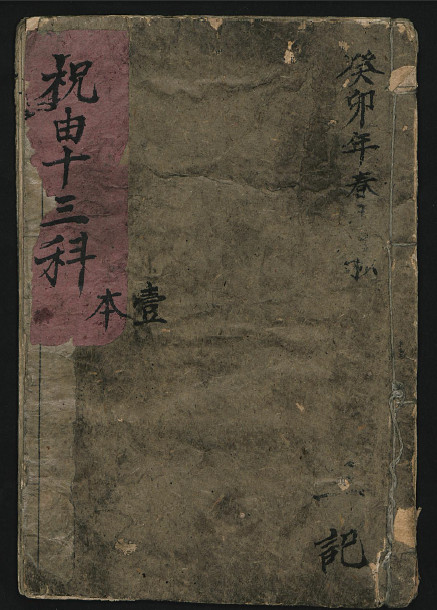 癸卯年春
祝由十三科
壹本
記